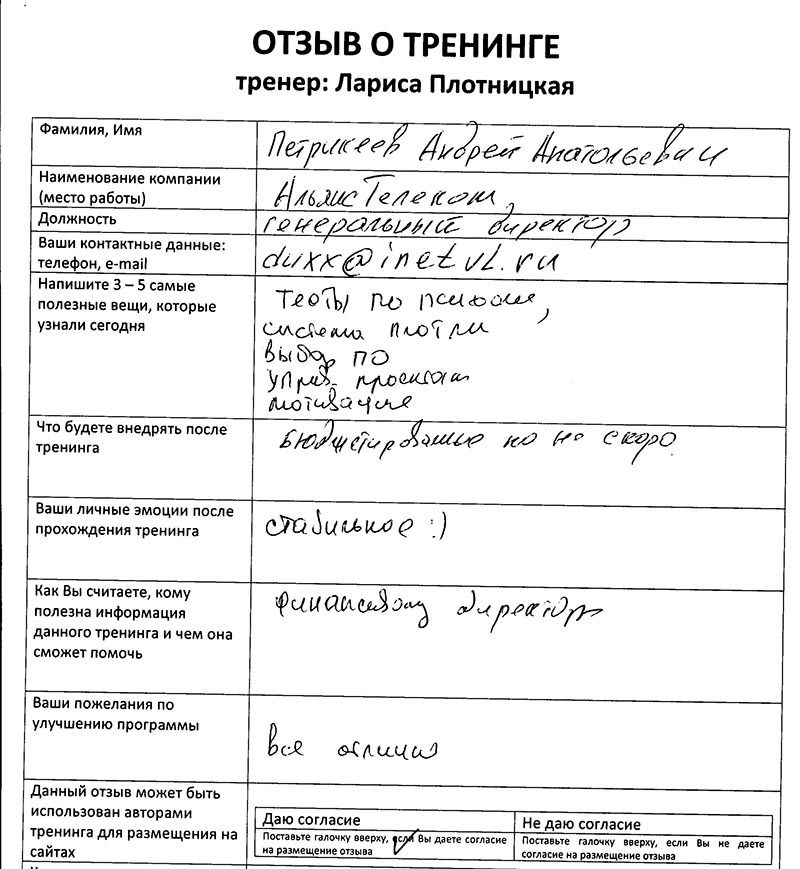 ОТЗЫВ О ТРЕНИНГЕ
тренер: Лариса Плотницкая
Фамилия, Имя
Петрикеев Андрей Анатольевич
Наименование компании
(место работы)
АльянсТелеком,
Должность
генеральный директор
Ваши контактные данные:
телефон, e-mail
duxx@inetvl.ru
Напишите 3 – 5 самые
полезные вещи, которые
узнали сегодня
по
система
выбор ПО
управ.
мотивация
Что будете внедрять после
тренинга
Бюджетирование но не скоро
Ваши личные эмоции после
прохождения тренинга
стабильное :)
Как Вы считаете, кому
полезна информация
данного тренинга и чем она
сможет помочь
финансовому директору
Ваши пожелания по
улучшению программы
все отлично
Данный отзыв может быть
использован авторами
тренинга для размещения на
сайтах
Даю согласие
Поставьте галочку вверху, если Вы даете согласие
на размещение отзыва
Не даю согласие
Поставьте галочку вверху, если Вы не даете
согласие на размещение отзыва